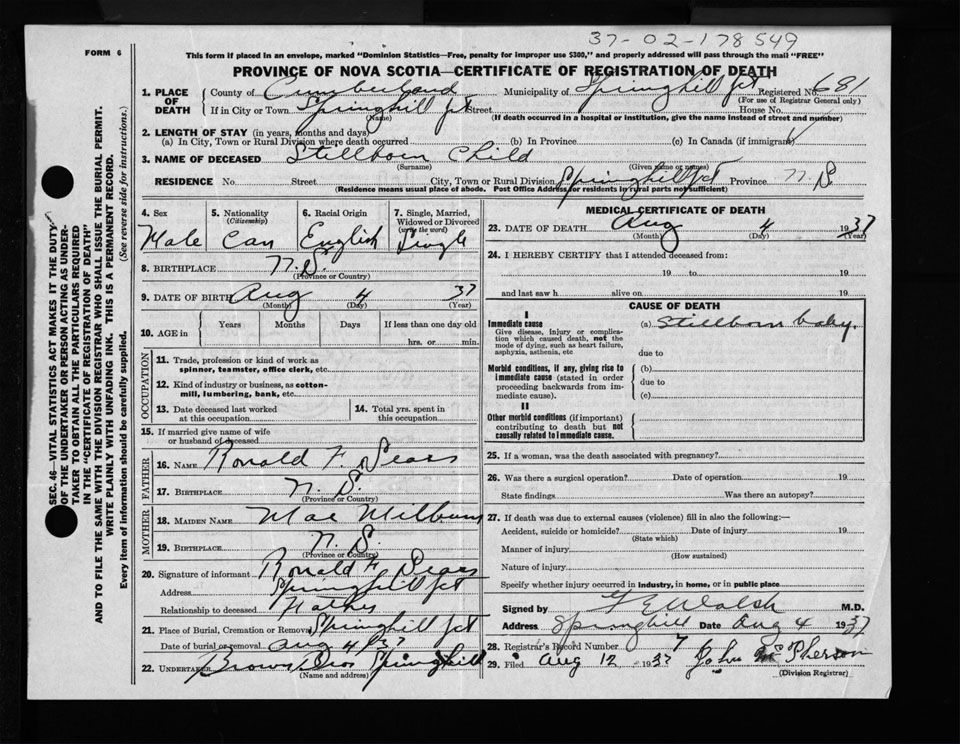 37-02-178549
FORM 6
This form if placed in an envelope, marked "Dominion Statistics—Free, penalty for improper use $300," and properly addressed will pass through the mail "FREE"
PROVINCE OF NOVA SCOTIA—CERTIFICATE OF REGISTRATION OF DEATH
1. PLACE OF DEATH County of Cumberland Municipality of Springhill Jct Registered No. 681
(For use of Registrar General only)
If in City or Town Springhill Jct Street House No.
(Name) (If death occurred in a hospital or institution, give the name instead of street and number)
2. LENGTH OF STAY (in years, months and days)
(a) In City, Town or Rural Division where death occurred (b) In Province (c) In Canada (if immigrant)
3. NAME OF DECEASED Stillborn Child
(Surname) (Given name or names)
RESIDENCE No. Street City, Town or Rural Division Springhill Jct Province N. S.
(Residence means usual place of abode. Post Office Address for residents in rural parts not sufficient)
4. Sex Male
5. Nationality (Citizenship) Can
6. Racial Origin English
7. Single, Married, Widowed or Divorced (write the word) Single
8. BIRTHPLACE N. S.
(Province or Country)
9. DATE OF BIRTH Aug 4 37
(Month) (Day) (Year)
10. AGE in Years Months Days If less than one day old
hrs. or min.
OCCUPATION
11. Trade, profession or kind of work as spinner, teamster, office clerk, etc.
12. Kind of industry or business, as cotton-mill, lumbering, bank, etc.
13. Date deceased last worked at this occupation
14. Total yrs. spent in this occupation
15. If married give name of wife or husband of deceased
FATHER
16. NAME Ronald F. Sears
17. BIRTHPLACE N. S.
(Province or Country)
MOTHER
18. MAIDEN NAME Mae Milburn
19. BIRTHPLACE N. S.
(Province or Country)
20. Signature of informant Ronald F. Sears
Address Springhill Jct
Relationship to deceased Father
21. Place of Burial, Cremation or Removal Springhill Jct
Date of burial or removal Aug 4/37
22. UNDERTAKER Brown Bros Springhill
(Name and address)
MEDICAL CERTIFICATE OF DEATH
23. DATE OF DEATH Aug 4 1937
(Month) (Day) (Year)
24. I HEREBY CERTIFY that I attended deceased from:
19 to 19
and last saw h alive on 19
CAUSE OF DEATH
I
Immediate cause
Give disease, injury or complication which caused death, not the mode of dying, such as heart failure, asphyxia, asthenia, etc
(a) Stillborn baby.
due to
Morbid conditions, if any, giving rise to immediate cause (stated in order proceeding backwards from immediate cause).
(b)
due to
(c)
II
Other morbid conditions (if important) contributing to death but not causally related to immediate cause.
25. If a woman, was the death associated with pregnancy?
26. Was there a surgical operation? Date of operation 19
State findings Was there an autopsy?
27. If death was due to external causes (violence) fill in also the following:—
Accident, suicide or homicide? Date of injury 19
(State which)
Manner of injury
(How sustained)
Nature of injury
Specify whether injury occurred in industry, in home, or in public place
Signed by Walsh M.D.
Address Springhill Date Aug 4 1937
28. Registrar's Record Number 7
29. Filed Aug 12 1937 John McPherson
(Division Registrar)
SEC. 46—VITAL STATISTICS ACT MAKES IT THE DUTY
OF THE UNDERTAKER OR PERSON ACTING AS UNDER-
TAKER TO OBTAIN ALL THE PARTICULARS REQUIRED
IN THE "CERTIFICATE OF REGISTRATION OF DEATH"
AND TO FILE THE SAME WITH THE DIVISION REGISTRAR WHO SHALL ISSUE THE BURIAL PERMIT.
WRITE PLAINLY WITH UNFADING INK. THIS IS A PERMANENT RECORD.
Every item of information should be carefully supplied. (See reverse side for instructions.)